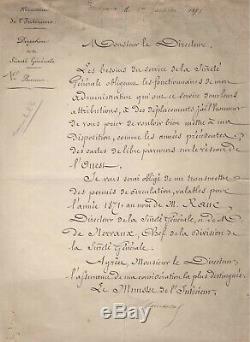 Ministère
de l'Intérieur
Direction
de la
Sûreté Générale
Bureau
1871
Monsieur le Directeur,
Les besoins du service de la Sûreté
Générale obligeant les fonctionnaires de mon
administration qui ont ce service dans leurs
attributions, à des déplacements, j'ai l'honneur
de vous prier de vouloir bien mettre à ma
disposition, comme les années précédentes
des cartes de libre parcours sur le réseau de
l'Ouest.
Je vous serai obligé de me transmettre
des permis de circulation, valables pour
l'année 1871 au nom de M. Ranc
Directeur de la Sûreté Générale, et de M.
de Nervaux, Chef de la division de
la Sûreté Générale.
Agréez, Monsieur le Directeur,
l'assurance de ma considération la plus distinguée.
Le Ministre de l'Intérieur,